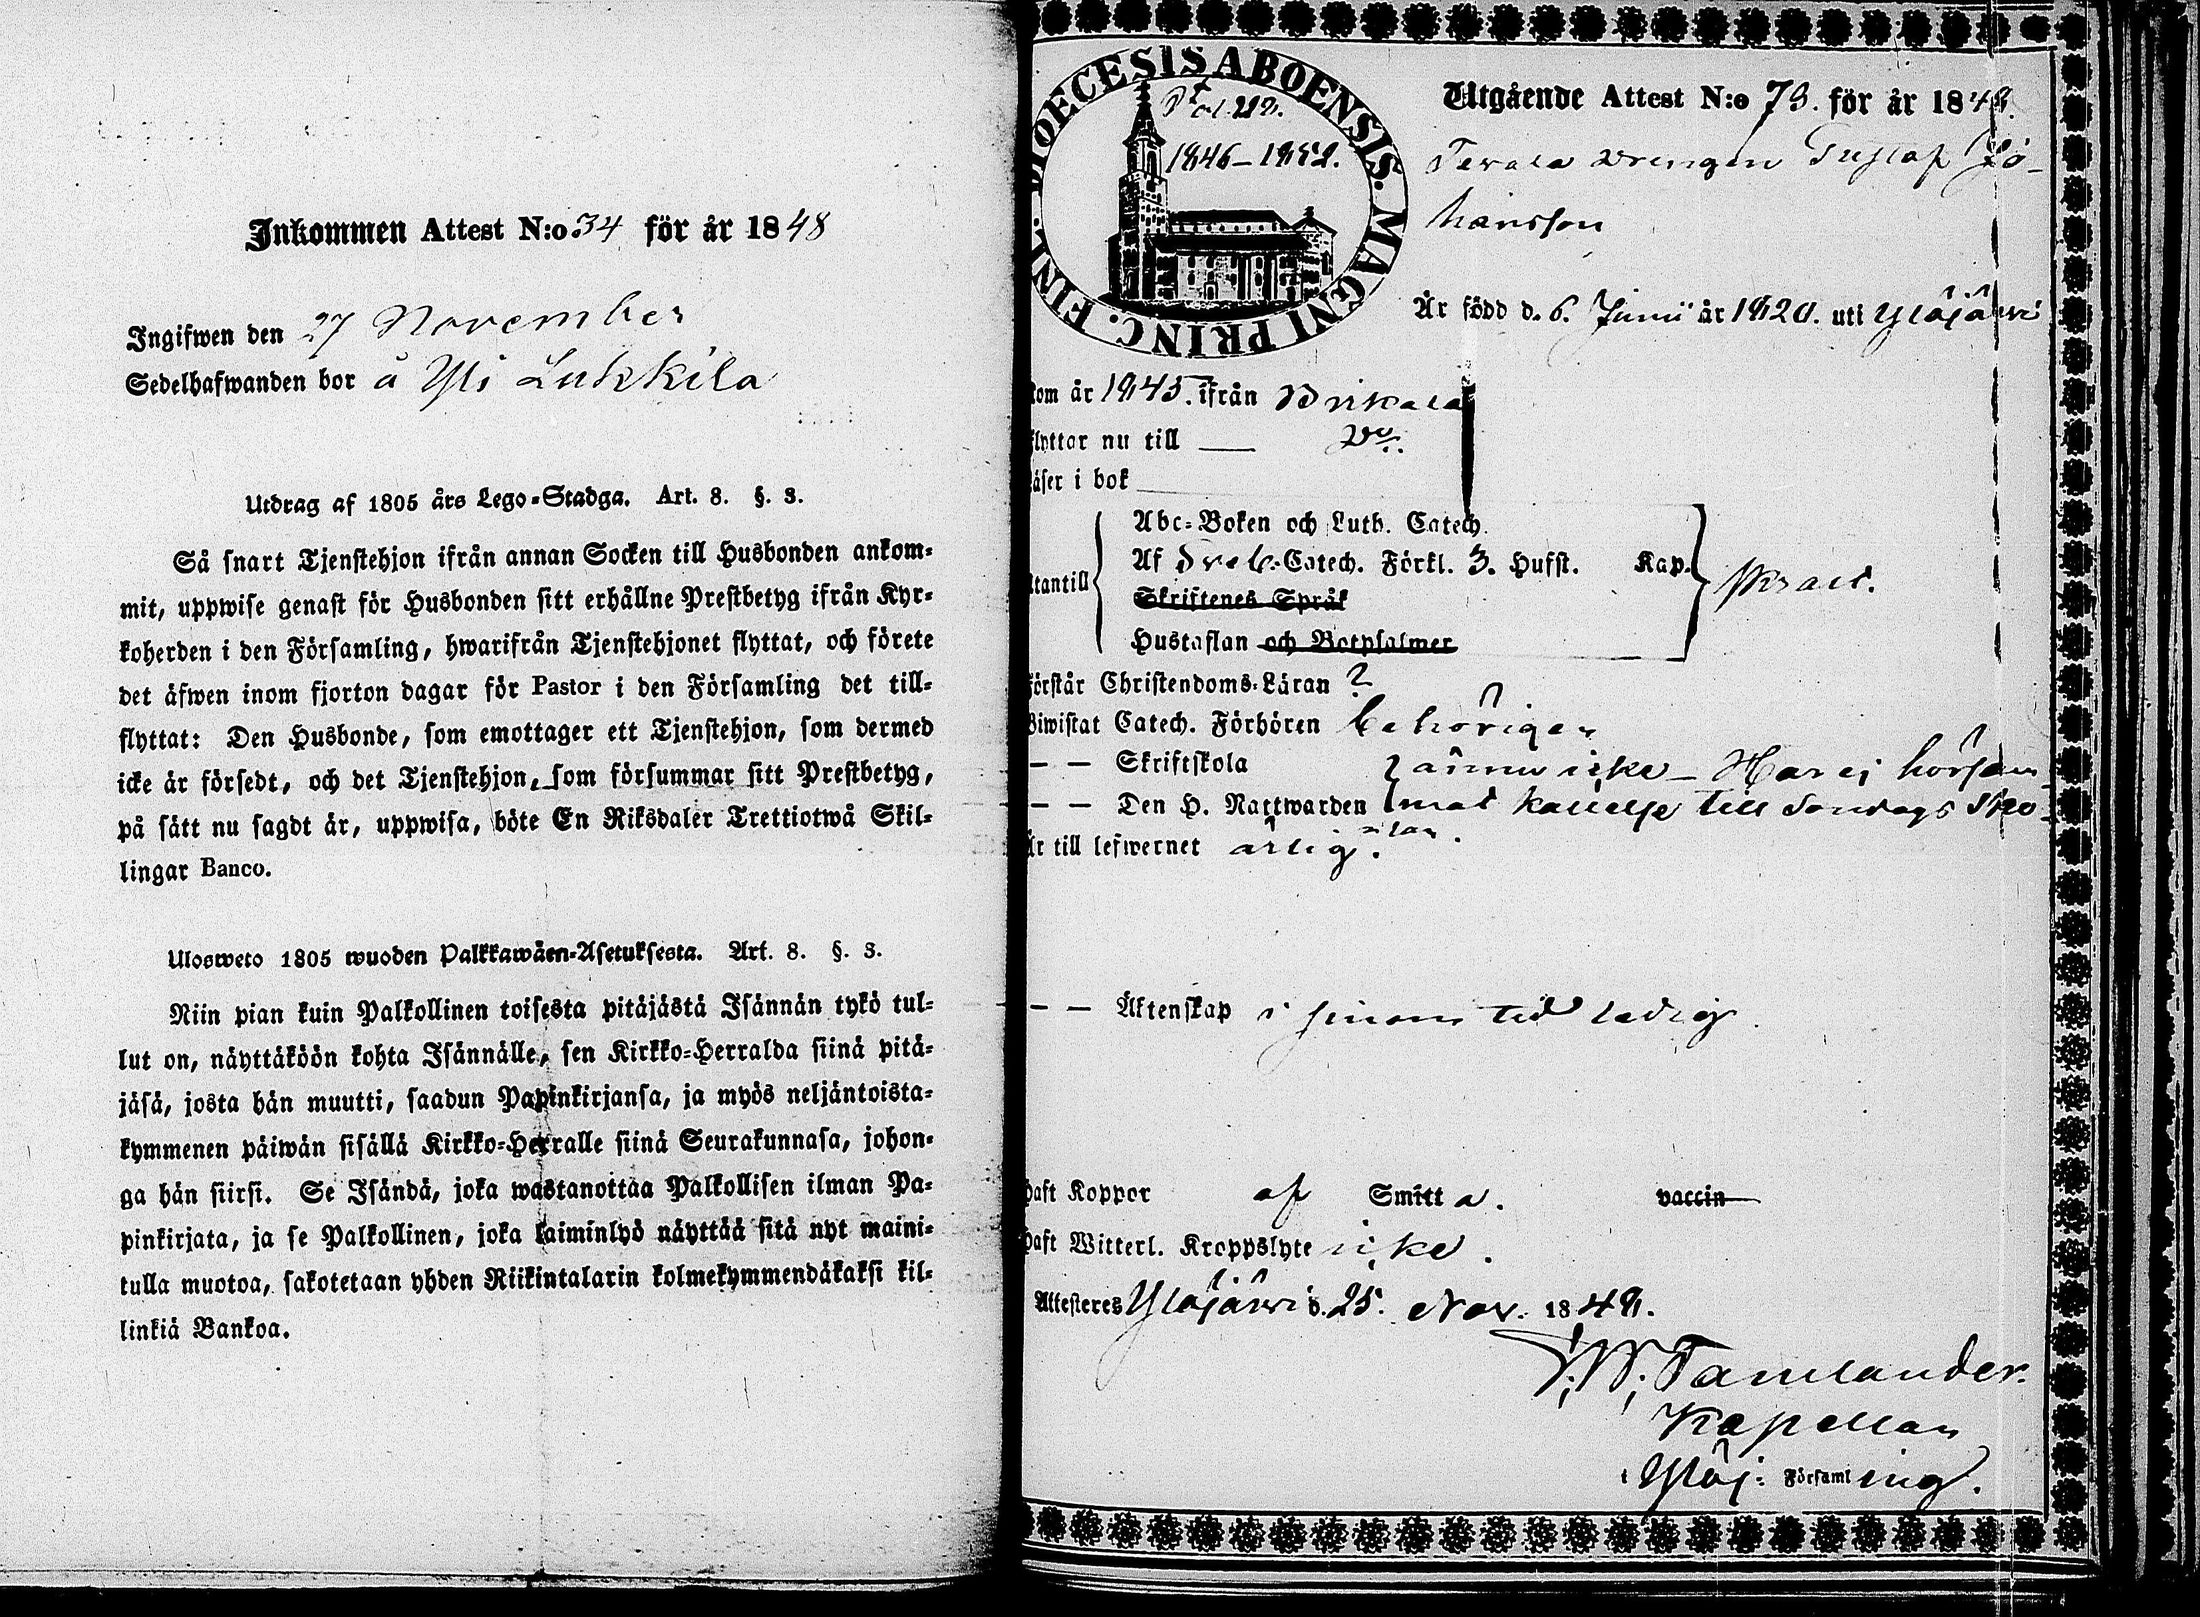 Inkommen Attest N:o 34 för år 1848
Ingifwen den 27 November
Sedelhafwanden bor å Yli Lukkila
Utdrag af 1805 års Lego-Stadga. Art. 8. §. 3.
Så snart Tjenstehjon ifrån annan Socken till Husbonden ankom-
mit, uppwise genast för Husbonden sitt erhållne Prestbetyg ifrån Kyr-
koherden i den Församling, hwarifrån Tjenstehjonet flyttat, och förete
det äfwen inom fjorton dagar för Pastor i den Församling det till-
flyttat: Den Husbonde, som emottager ett Tjenstehjon, som dermed
icke är försedt, och det Tjenstehjon, som försummar sitt Prestbetyg,
på sätt nu sagdt är, uppwisa, böte En Riksdaler Trettiotwå Skil-
lingar Banco.
Ulosweto 1805 wuoden Palkkawäen-Asetuksesta. Art. 8. §. 3.
Niin pian kuin Palkollinen toisesta pitäjästä Isännän tykö tul-
lut on, näyttäköön kohta Isännälle, sen Kirkko-Herralda siinä pitä-
jäsä, josta hän muutti, saadun Papinkirjansa, ja myös neljäntoista-
kymmenen päiwän sisällä Kirkko-Herralle siinä Seurakunnasa, johon-
ga hän siirsi. Se Isändä, joka wastanottaa Palkollisen ilman Pa-
pinkirjata, ja se Palkollinen, joka laiminlyö näyttää sitä nyt maini-
tulla muotoa, sakotetaan yhden Riikintalarin kolmekymmendäkaksi kil-
linkiä Bankoa.
DIOECESIS ABOENSIS. MAGNI PRINC. FINL.
1846-1852.
Utgående Attest N:o 73. för år 1848.
drengen Gustaf Jo-
hansson
År född d. 6. Junii år 1820. uti Ylöjärwi
kom år 1845. ifrån Birkala
flyttar nu till — Do.
läser i bok
Abc-Boken och Luth. Catech.
utantill Af Sveb. Catech. Förkl. 3. Hufst. Kap. svart.
Skriftenes Språk
Hustaflan och Botpsalmer
förstår Christendoms-Läran ?
Biwistat Catech. Förhören behörigen
— — Skriftskola ännu icke - Har ej hörsam
— — Den H. Nattwarden mat kallelse till Söndags Sko-
lan.
Är till lefwernet ärlig.
— — Äktenskap i sinom tid ledig.
haft Koppor af Smitta. vaccin
haft Witterl. Kroppslyte icke.
Attesteres Ylöjärwi d. 25. Nov. 1848.
Tamlander.
Kapellan
i Ylöj. Församling.